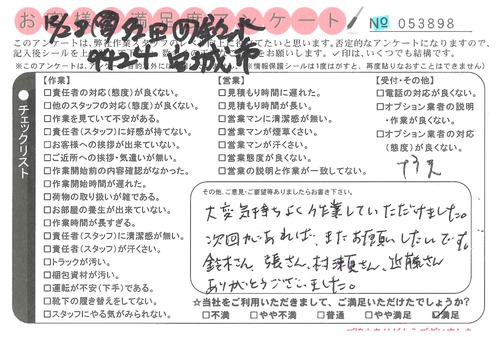 お客様満足度アンケート! No 053898
このアンケートは、弊社作業スタッフの
いと思います。否定的なアンケートになりますので、
記入後シールを上
印は、いくつでも結構です。
※このアンケートは、
※情報保護シールは1度はがすと、再度貼りなおすことはできません)
チェックリスト
【作業】
□責任者の対応(態度)が良くない。
□他のスタッフの対応(態度)が良くない。
□作業を見ていて不安がある。
□責任者(スタッフ)に好感が持てない。
□お客様への挨拶が出来ていない。
□ご近所への挨拶・気遣いが無い。
□作業開始前の内容確認がなかった。
□作業開始時間が遅れた。
□荷物の取り扱いが雑である。
□お部屋の養生が出来ていない。
□作業時間が長すぎる。
□責任者(スタッフ)に清潔感が無い。
□責任者(スタッフ)が汗くさい。
□トラックが汚い。
□梱包資材が汚い。
□運転が不安(下手)である。
□靴下の履き替えをしてない。
□スタッフにやる気がみられない。
【営業】
□見積もり時間に遅れた。
□見積もり時間が長い。
□営業マンに清潔感が無い。
□営業マンが煙草くさい。
□営業マンが汗くさい。
□営業態度が良くない。
□営業の説明と作業が一致してない。
【受付・その他】
□電話の対応が良くない。
□オプション業者の説明
・作業が良くない。
□オプション業者の対応
(態度)が良くない。
その他、ご意見・ご要望等ありましたらお書き下さい。
大変気持ちよく作業していただけました。
次回があれば、またお願いしたいです。
鈴木さん、張さん、村瀬さん、近藤さん
ありがとうございました。
☆当社をご利用いただきまして、ご満足いただけたでしょうか?
□不満 □やや不満 □普通 □やや満足 ☑満足